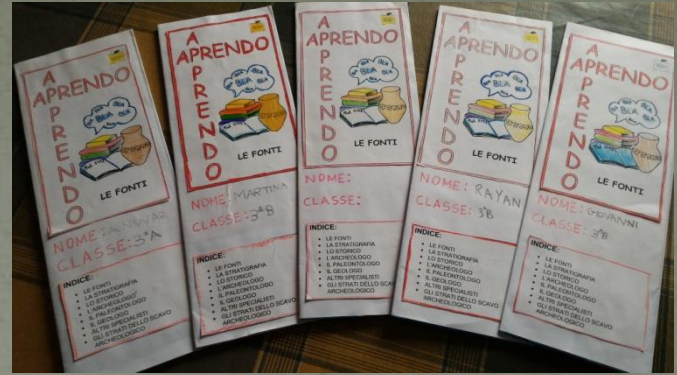 APRENDO
APRENDO
LE FONTI
BLA
NOME:
CLASSE: 3ªA
INDICE:
LE FONTI
LA STRATIGRAFIA
LO STORICO
L'ARCHEOLOGO
IL PALEONTOLOGO
IL GEOLOGO
ALTRI SPECIALISTI
GLI STRATI DELLO SCAVO
ARCHEOLOGICO
APRENDO
APRENDO
BLA
LE FONTI
NOME: MARTINA
CLASSE: 3ªB
INDICE:
LE FONTI
LA STRATIGRAFIA
LO STORICO
L'ARCHEOLOGO
IL PALEONTOLOGO
IL GEOLOGO
ALTRI SPECIALISTI
GLI STRATI DELLO SCAVO
ARCHEOLOGICO
APRENDO
APRENDO
BLA
LE FONTI
NOME:
CLASSE:
INDICE:
LE FONTI
LA STRATIGRAFIA
LO STORICO
L'ARCHEOLOGO
IL PALEONTOLOGO
IL GEOLOGO
ALTRI SPECIALISTI
GLI STRATI DELLO SCAVO
ARCHEOLOGICO
APRENDO
APRENDO
BLA
LE FONTI
NOME: RAYAN
CLASSE: 3ªB
INDICE:
LE FONTI
LA STRATIGRAFIA
LO STORICO
L'ARCHEOLOGO
IL PALEONTOLOGO
IL GEOLOGO
ALTRI SPECIALISTI
GLI STRATI DELLO SCAVO
ARCHEOLOGICO
APRENDO
APRENDO
BLA
LE FONTI
NOME: GIOVANNI
CLASSE: 3ªB
INDICE:
LE FONTI
LA STRATIGRAFIA
LO STORICO
L'ARCHEOLOGO
IL PALEONTOLOGO
IL GEOLOGO
ALTRI SPECIALISTI
GLI STRATI DELLO SCAVO
ARCHEOLOGICO